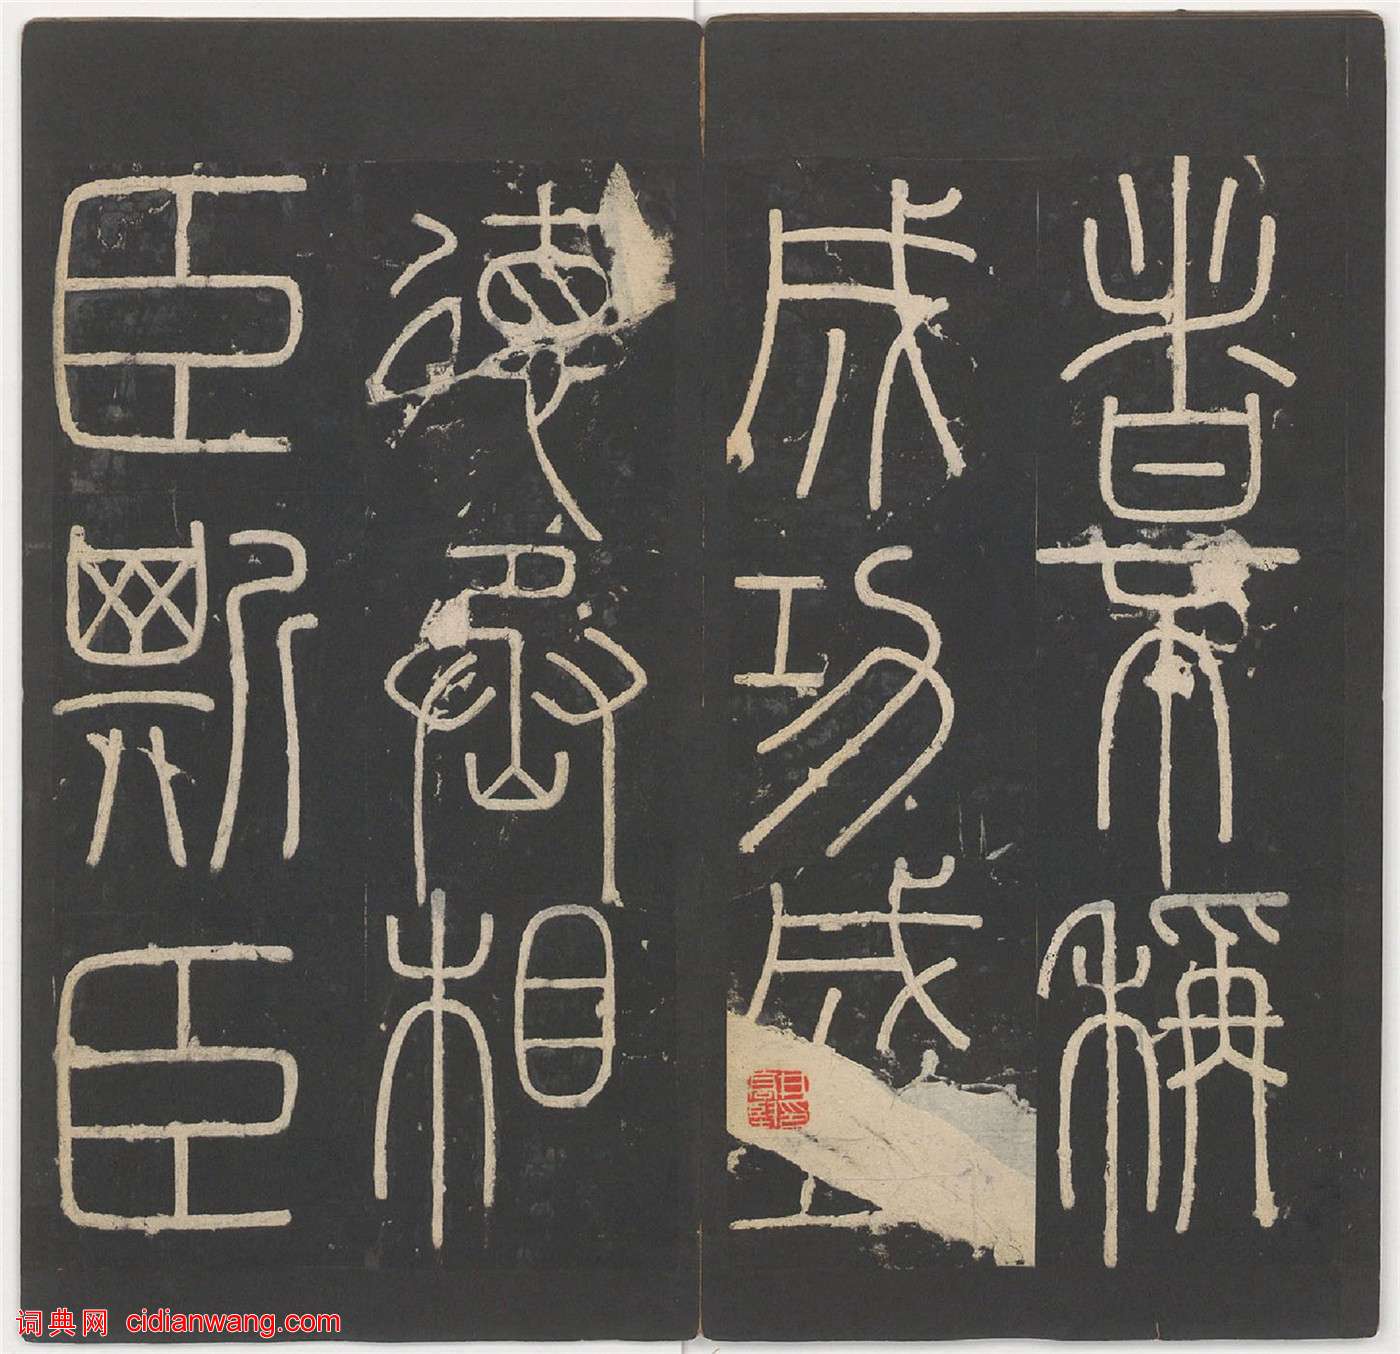 者不稱
成功盛
德丞相
臣斯臣
词典网 cidianwang.com